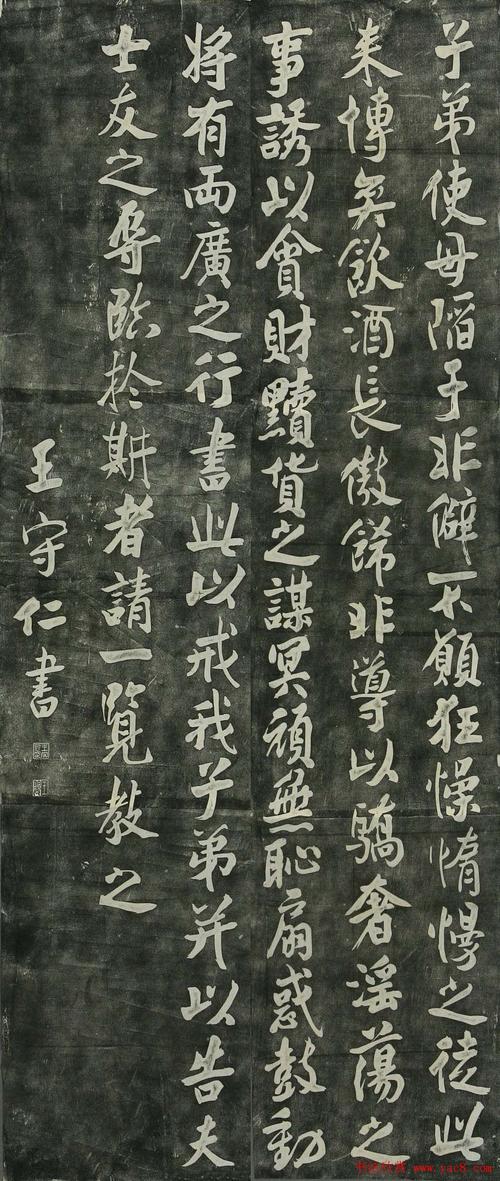 子弟使毋陷于非僻不願狂懆惰慢之徒此
来博奕飲酒長傲飾非導以驕奢淫蕩之
事誘以貪財黷貨之謀冥頑無恥扇惑鼓動
將有兩廣之行書此以戒我子弟并以告夫
士友之辱臨於斯者請一覽教之
王守仁書
书法欣赏 www.yac8.com